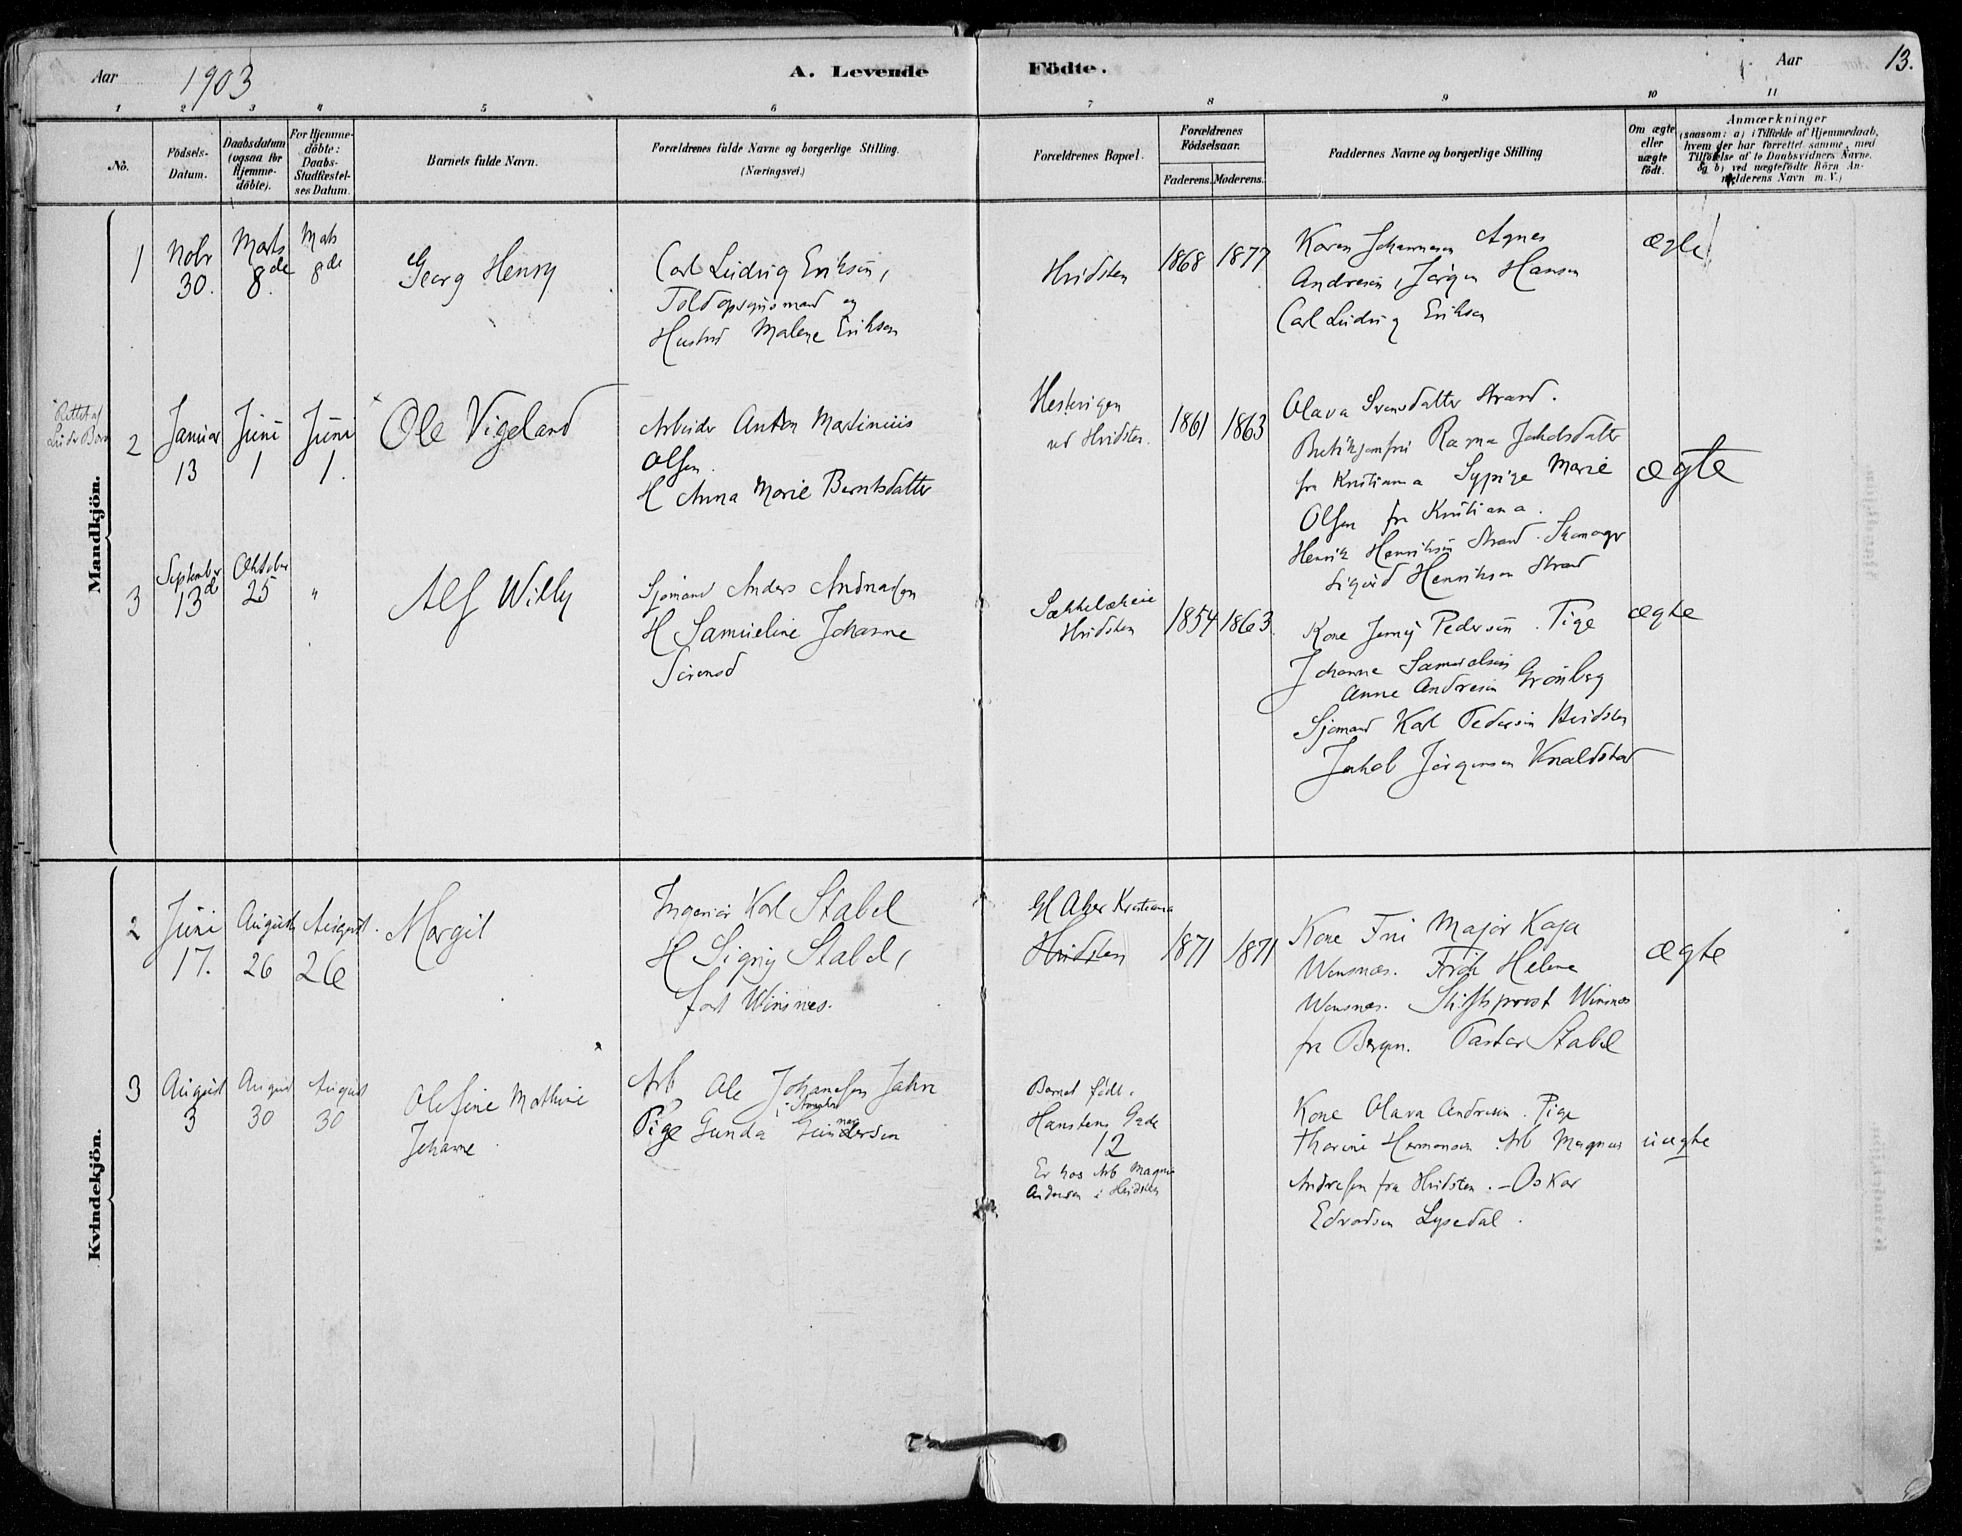 Aar 1903 A. Levende Födte. Aar 13.
1 2 3 4 5 6 7 8 9 10 11
No.
Födsels-Datum.
Daabsdatum (ogsaa for Hjemme-döbte).
For Hjemme-döbte: Daabs-Stadfæstel-ses Datum.
Barnets fulde Navn.
Forældrenes fulde Navne og borgerlige Stilling. (Næringsvei.)
Forældrenes Bopæl.
Forældrenes Födselsaar.
Faderens. Moderens.
Faddernes Navne og borgerlige Stilling
Om ægte eller uægte födt.
Anmærkninger
(saasom: a) i Tilfælde af Hjemmedaab, hvem der har forrettet samme, med Tilföielse af to Daabsvidners Navne, og b) ved uægtefödte Börn An-melderens Navn m. V.)
Mandkjön.
1
Nobr 30.
Marts 8de
Mats 8de
Georg Henry
Carl Ludvig Eriksen,
Toldopsynsmand og
Hustru Malene Eriksen
Hvidsten
1868 1877
Karen Johannesen Agnes
Andresen, Jörgen Hansen
Carl Ludvig Eriksen
ægte
Rettet af
2
Januar 13
Juni 1
Juni 1.
Ole Vigeland
Arbeider Anton Martinius
Olsen
H Anna Marie Berntsdatter
ved Hvidsten.
1861 1863
Olava Svensdatter Strand.
Butikjomfru Ragna Jakobsdatter
fra Kristiania Sypige Marie
Olsen fra Kristiania.
Henrik Henriksen Strand. Skomager
Sigurd Henriksen Strand
ægte
3
September 13d
Oktober 25
"
Alf Willy
Sjömand Anders Andreasen
H Samueline Johanne
Hvidsten
1854 1863.
Kone Jenny Pedersen. Pige
Johanne Samuelsen
Anne Andresen Grönberg
Sjömand Karl Pedersen Hvidsten
Jakob Jörgensen Knaldstad
ægte
Kvindekjön.
2
Juni 17.
August 26
August. 26
Margit
Ingeniör Karl Stabel
H Signy Stabel,
født Winsnes.
Gl Aker Kristiania
Hvidsten
1871 1871
Kone Fru Major Kaja
Winsnæs. Frök Helene
Winsnæs. Stiftsprost Winsnes
fra Bergen. Pastor Stabel
ægte
3
August 3
August 30
August 30
Olefine Mathine
Johanne
Arb Ole Johansen Jahr
Pige Gunda Gundersen
Barnet född.
Hanstens Gade
12
Er hos Arb Magnus
Andresen i Hvidsten
Kone Olava Andresen. Pige
Thorine Hermansen Arb Magnus
Andresen fra Hvidsten. – Oskar
Edvardsen Lysedal.
uægte